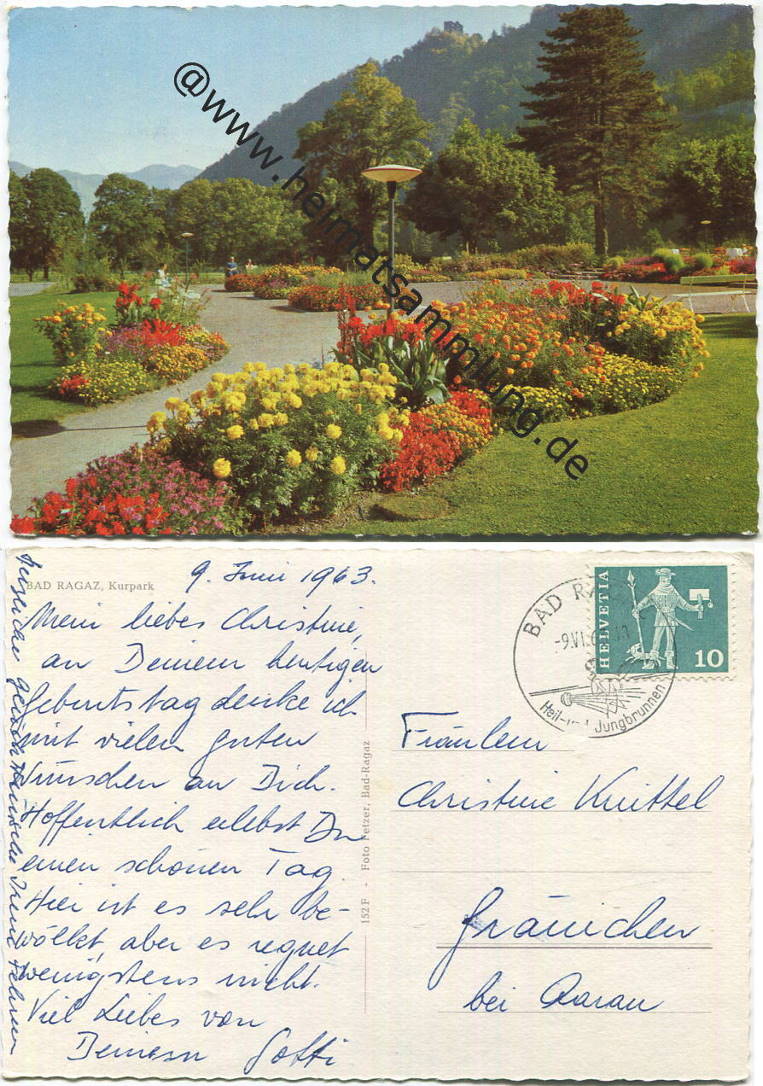 @www.heimatsammlung.de
BAD RAGAZ, Kurpark
9. Juni 1963.
Mein liebes Christine,
an Deinem heutigen
Geburtstag denke ich
mit vielen guten
Wünschen an Dich.
Hoffentlich erlebst Du
einen schönen Tag.
Hier ist es sehr be-
wölkt, aber es regnet
wenigstens nicht.
Viel Liebes von
Deinem Gotti
152 F - Foto Fetzer, Bad-Ragaz
BAD
-9.VI.
Heil- und Jungbrunnen
HELVETIA
10
Fräulein
Christine Knittel
Gränichen
bei Aarau